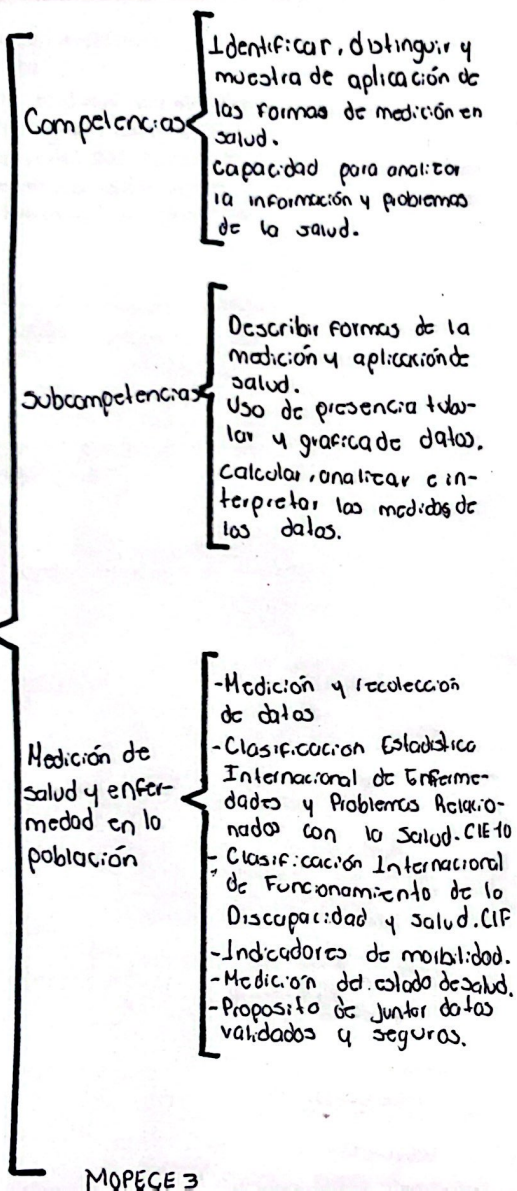 Competencias
Identificar, distinguir y
muestra de aplicación de
las formas de medición en
salud.
Capacidad para analizar
la información y problemas
de la salud.
Subcompetencias
Describir formas de la
medición y aplicación de
salud.
Uso de presencia tubu-
lar y grafica de datos.
Calcular, analizar e in-
terpretar las medidas de
los datos.
Medición de
salud y enfer-
medad en la
población
-Medición y recolección
de datos
-Clasificacion Estadistica
Internacional de Enferme-
dades y Problemas Relacio-
nados con la Salud. CIE 10
- Clasificación Internacional
de Funcionamiento de la
Discapacidad y Salud. CIF
-Indicadores de morbilidad.
-Medición del estado de salud.
-Proposito de juntar datos
validados y seguros.
MOPECE 3